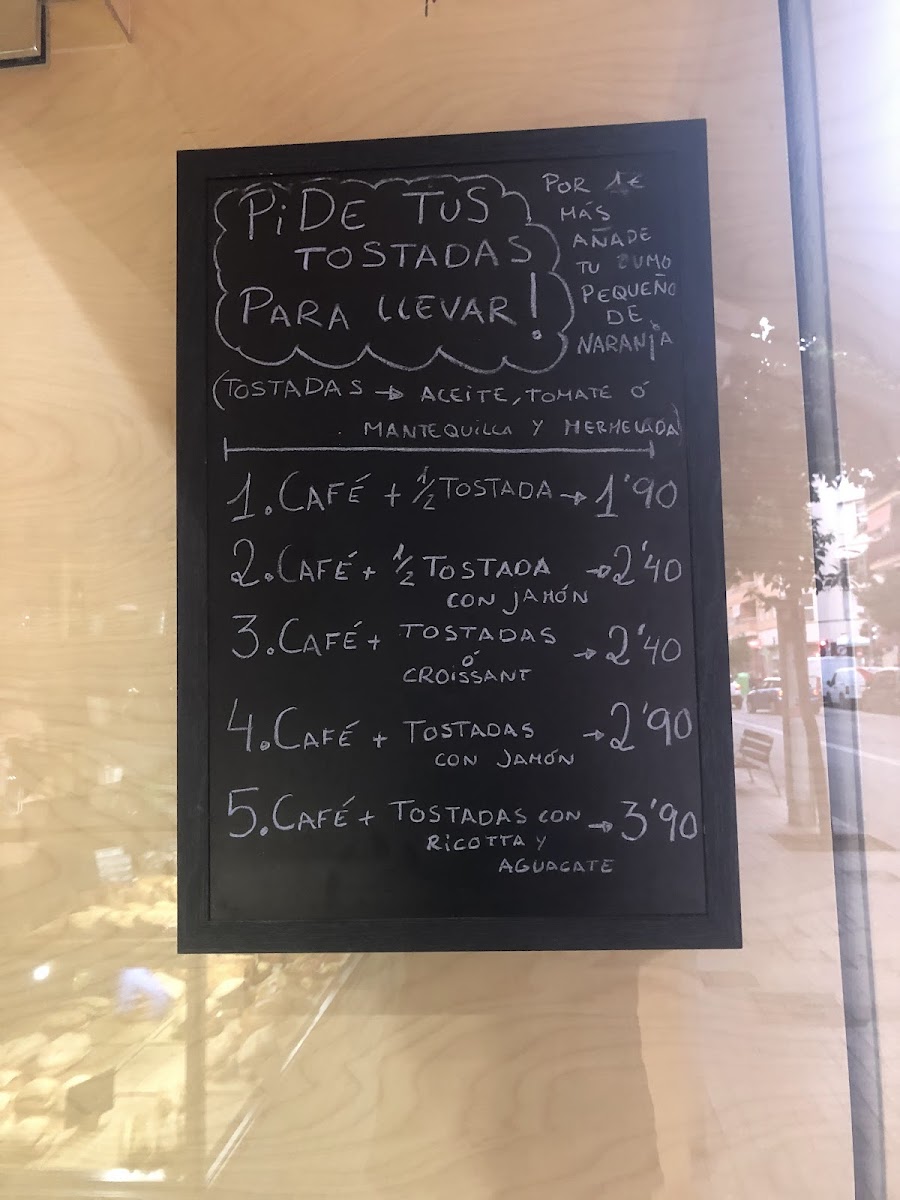 PiDE TUS
TOSTADAS
PARA LLEVAR!
POR 1€
MÁS
AÑADE
TU ZUMO
PEQUEÑO
DE
NARANJA
(TOSTADAS → ACEITE, TOMATE Ó
MANTEQUILLA Y MERMELADA)
1. CAFÉ + 1/2 TOSTADA → 1'90
2. CAFÉ + 1/2 TOSTADA → 2'40
CON JAMÓN
3. CAFÉ + TOSTADAS → 2'40
Ó
CROISSANT
4. CAFÉ + TOSTADAS → 2'90
CON JAMÓN
5. CAFÉ + TOSTADAS CON → 3'90
RICOTTA Y
AGUACATE